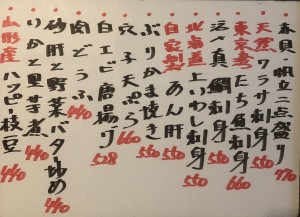 赤貝・帆立二点盛り 770
天然 ワラサ刺身 550
東京産 たち魚刺身 660
活〆真鯛刺身 550
北海道 上いわし刺身 550
自家製 あん肝 550
ぶりかま焼き 550
穴子天ぷら 660
白エビ唐揚げ 528
肉どうふ 440
砂肝と野菜バター炒め 440
りかと里芋煮 440
山形産 ハッピー枝豆 440